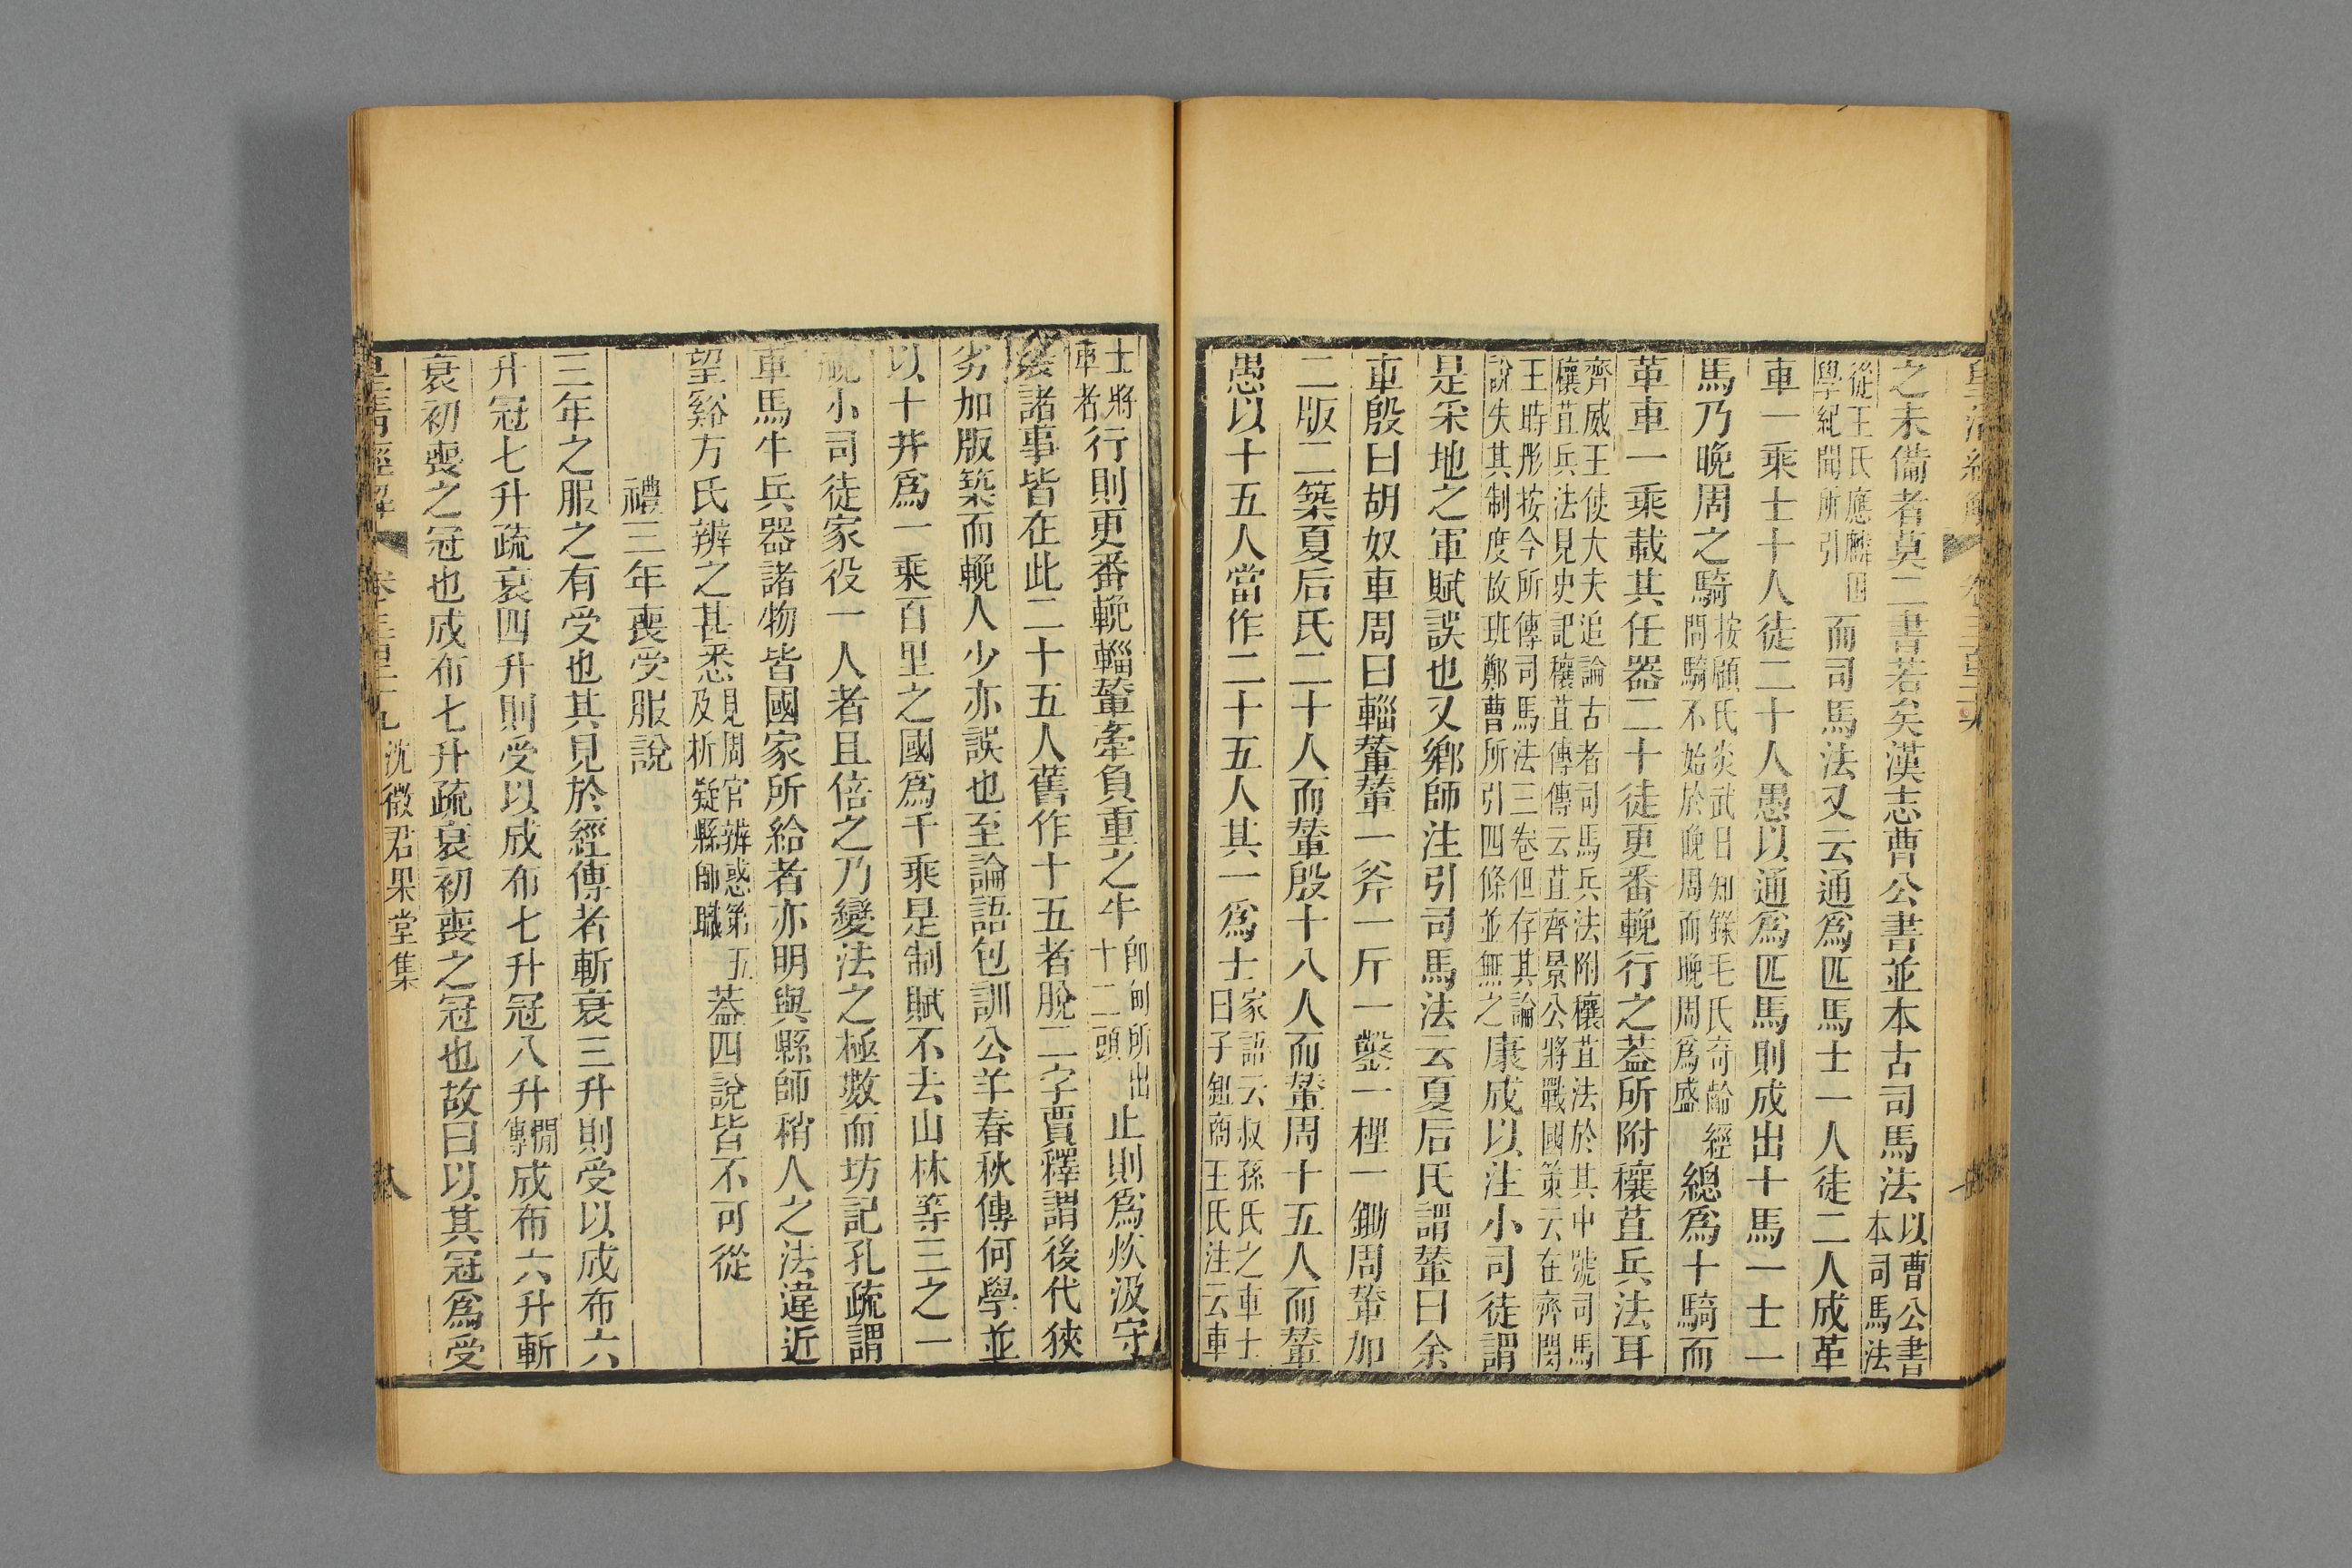 之未備者莫二書若矣漢志曹公書並本古司馬法以曹公書本司馬法
從王氏應麟困學紀聞所引而司馬法又云通爲匹馬士一人徒二人成革
車一乘士十人徒二十人愚以通爲匹馬則成出十馬一士一
馬乃晚周之騎按顧氏炎武日知錄毛氏奇齡經問騎不始於晚周而晚周爲盛總爲十騎而
革車一乘載其任器二十徒更番輓行之葢所附穰苴兵法耳
齊威王使大夫追論古者司馬兵法附穰苴法於其中號司馬穰苴兵法見史記穰苴傳傳云苴齊景公將戰國策云在齊閔
王時彤按今所傳司馬法三卷但存其論說失其制度故班鄭曹所引四條並無之康成以注小司徒謂
是采地之軍賦誤也又鄉師注引司馬法云夏后氏謂輦曰余
車殷曰胡奴車周曰輜輦輦一斧一斤一鑿一梩一鋤周輦加
二版二築夏后氏二十人而輦殷十八人而輦周十五人而輦
愚以十五人當作二十五人其一爲士家語云叔孫氏之車士曰子鉏商王氏注云車
士將車者行則更番輓輜輦牽負重之牛卽甸所出十二頭止則爲炊汲守
裝諸事皆在此二十五人舊作十五者脫二字賈釋謂後代狹
劣加版築而輓人少亦誤也至論語包訓公羊春秋傳何學並
以十井爲一乘百里之國爲千乘是制賦不去山林等三之一
視小司徒家役一人者且倍之乃變法之極數而坊記孔疏謂
車馬牛兵器諸物皆國家所給者亦明與縣師稍人之法違近
望谿方氏辨之甚悉見周官辨惑第五及析疑縣師職葢四說皆不可從
禮三年喪受服說
三年之服之有受也其見於經傳者斬衰三升則受以成布六
升冠七升疏衰四升則受以成布七升冠八升閒傳成布六升斬
衰初喪之冠也成布七升疏衰初喪之冠也故曰以其冠爲受
皇清經解 沈徵君果堂集 八